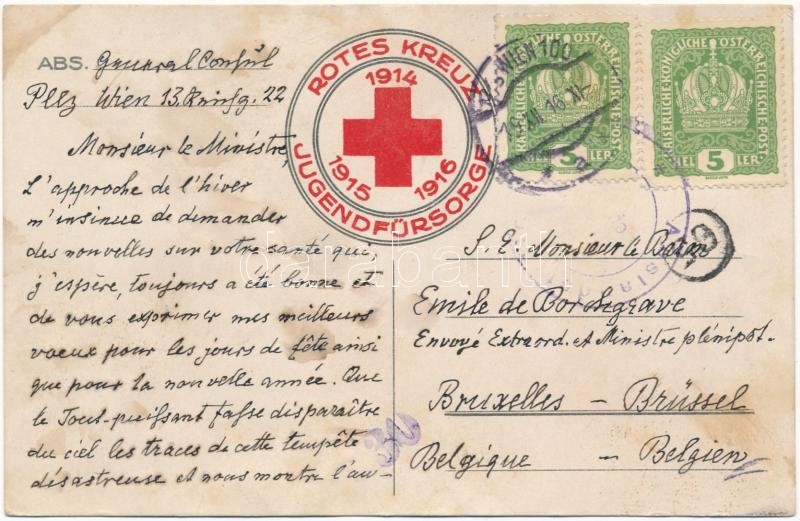 ABS. General Consul
Plez Wien 13. 22
Monsieur le Ministre,
L'approche de l'hiver
m'insinue de demander
des nouvelles sur votre santé que,
j'espère, toujours a été bonne et
de vous exprimer mes meilleurs
voeux pour les jours de fête ainsi
que pour la nouvelle année. Que
le Tout-puissant fasse disparaître
du ciel les traces de cette tempête
désastreuse et nous montre l'au-
ROTES KREUZ
1914
1915 1916
JUGENDFÜRSORGE
WIEN 100
KAISERLICHE KÖNIGLICHE ÖSTERREICHISCHE POST
HEL 5 LER
KAISERLICHE KÖNIGLICHE ÖSTERREICHISCHE POST
HEL 5 LER
S. E. Monsieur le Baron
Emile de Borchgrave
Envoyé Extraord. et Ministre plénipot.
Bruxelles – Brüssel
Belgique – Belgien
30
darabanth